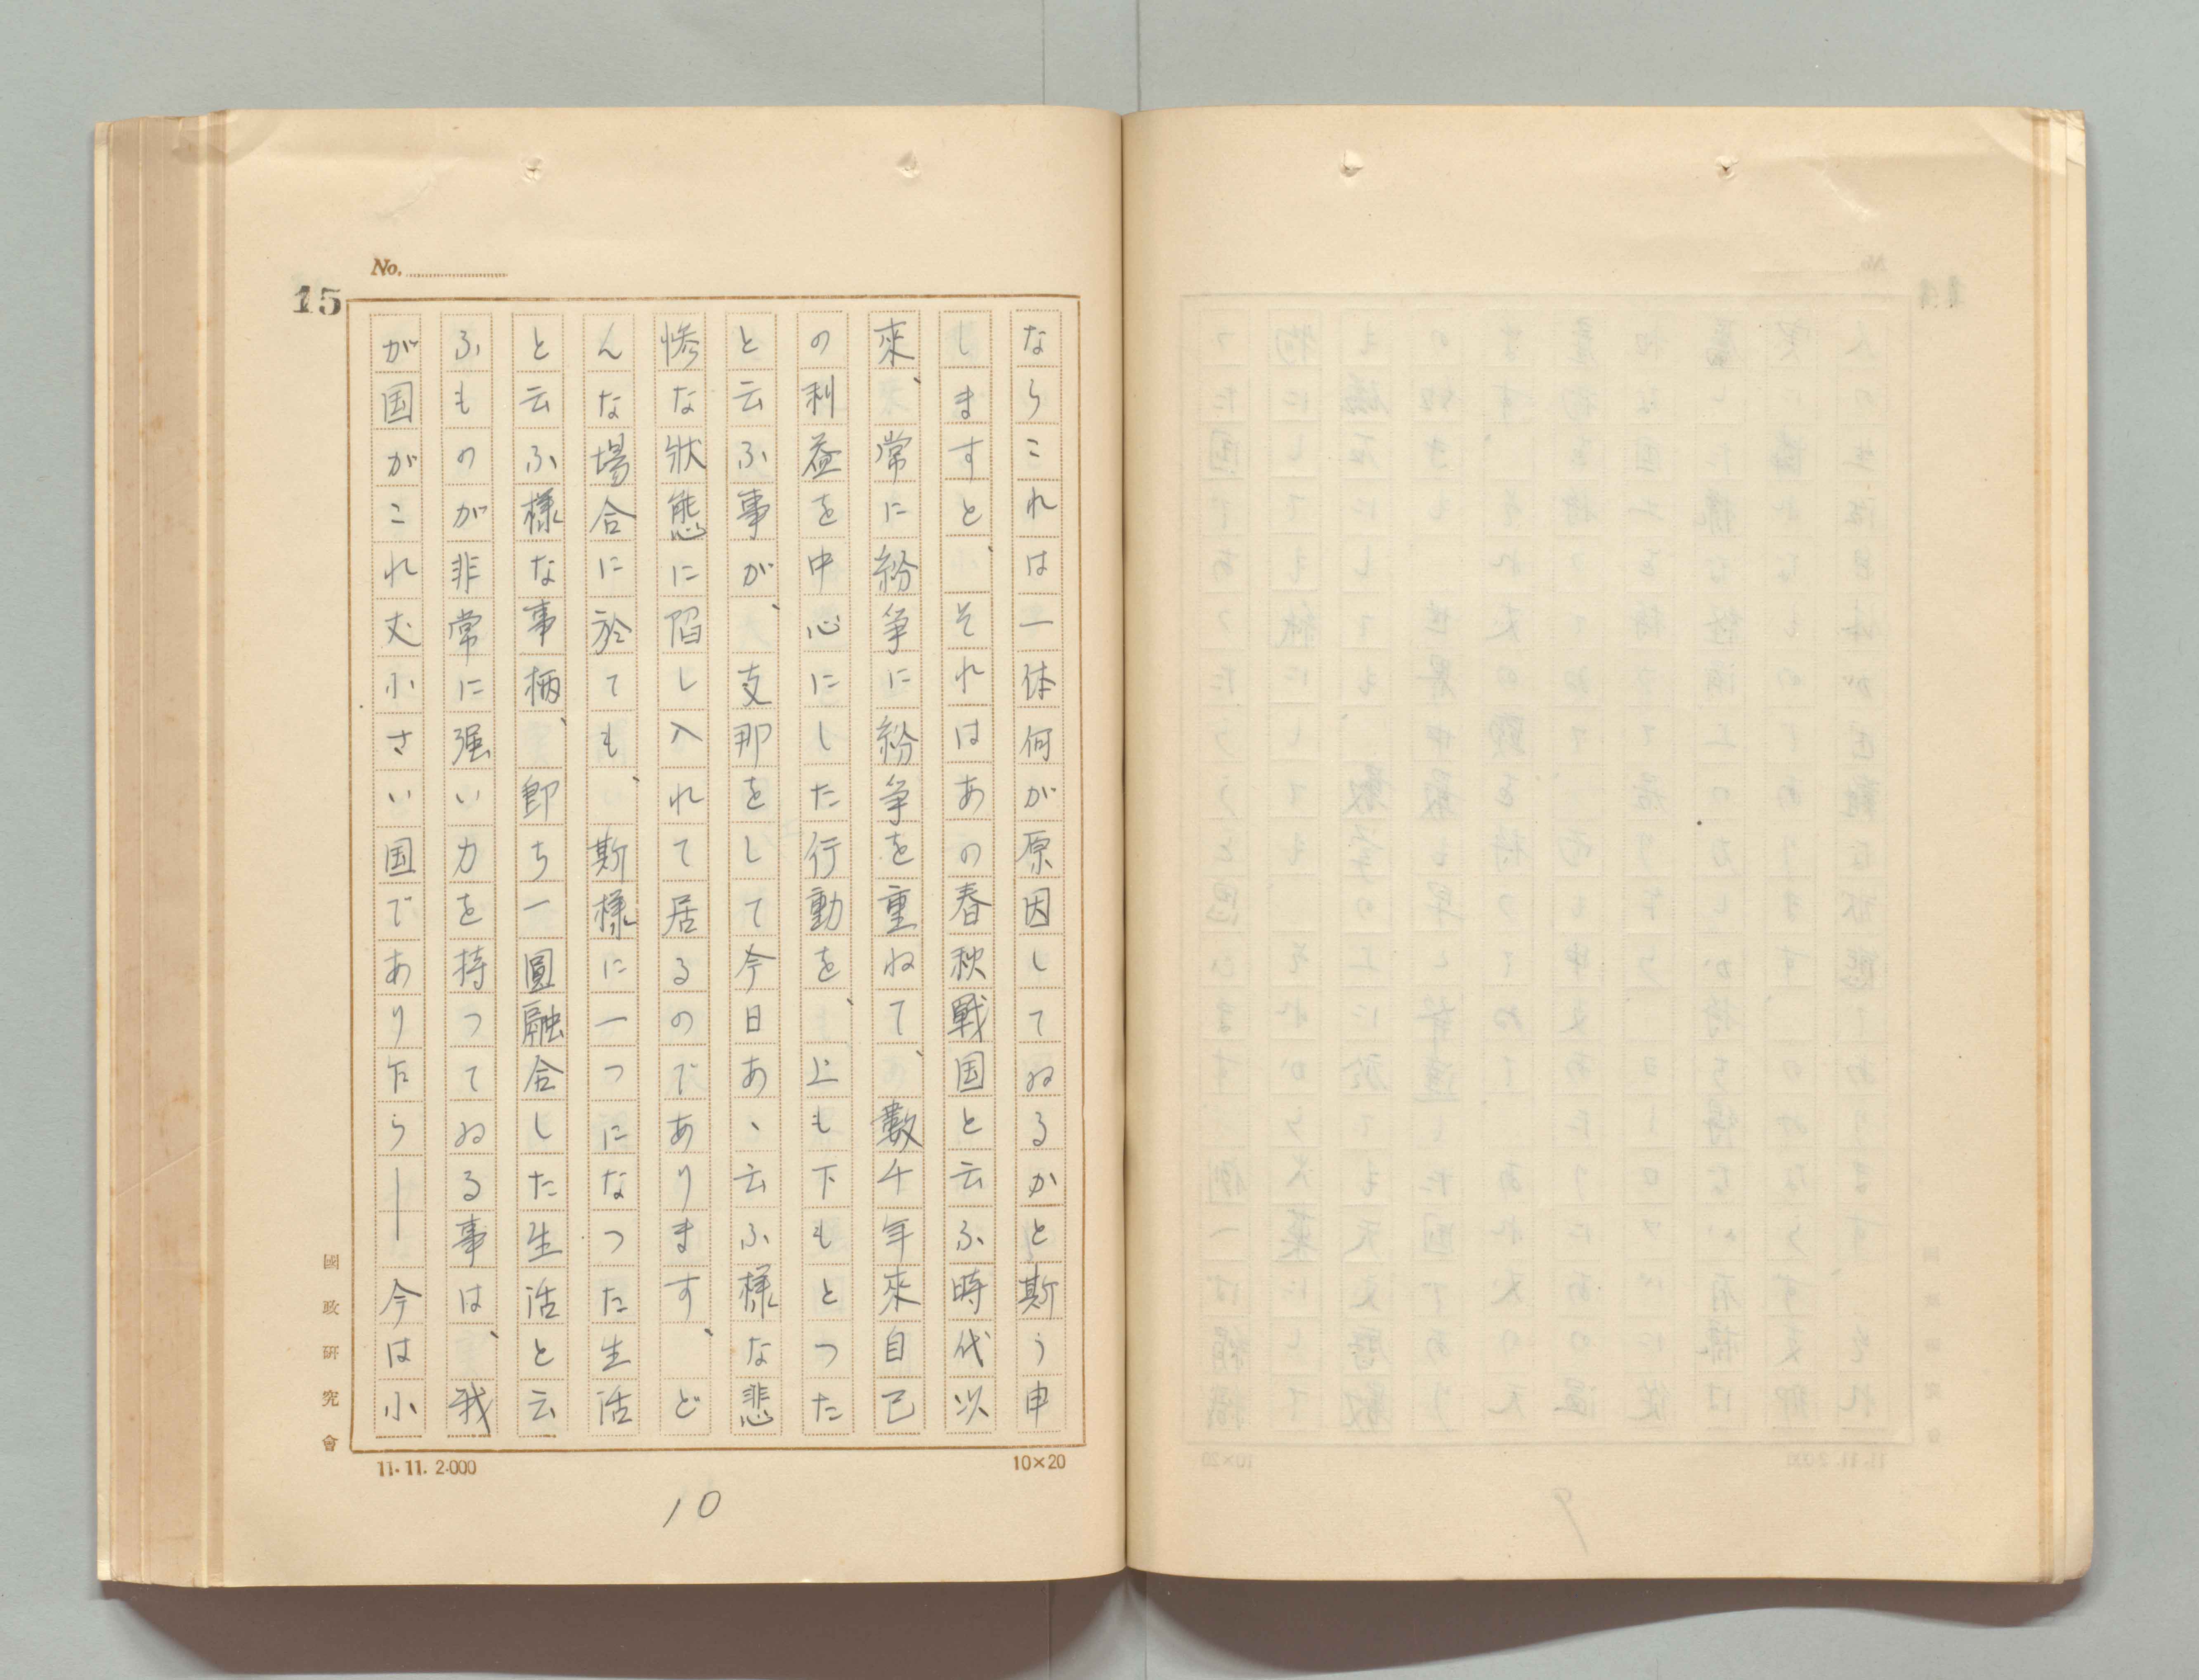 No.
15
ならこれは一体何が原因してゐるかと斯う申
しますと、それはあの春秋戰国と云ふ時代以
來、常に紛争に紛争を重ねて、數千年來自己
の利益を中心にした行動を、上も下もとつた
と云ふ事が、支那をして今日あゝ云ふ様な悲
惨な狀態に陷し入れて居るのであります、ど
んな場合に於ても、斯様に一つになつた生活
と云ふ様な事柄、卽ち一圓融合した生活と云
ふものが非常に强い力を持つてゐる事は、我
が国がこれ丈小さい国であり乍ら―今は小
國政硏究會
11.11.2.000
10×20
10